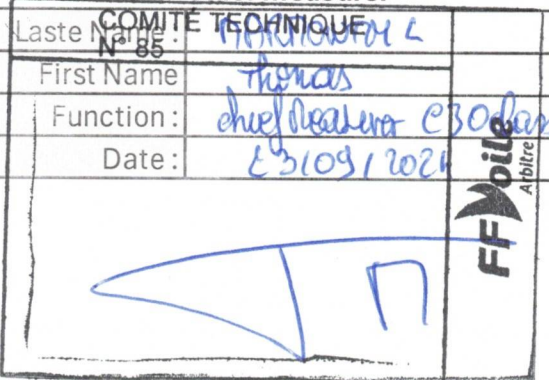 COMITÉ TECHNIQUE
N° 85
Laste Name :
First Name Thomas
Function : chief Measurer C30
Date : 23/09/2021
FFVoile
Arbitre